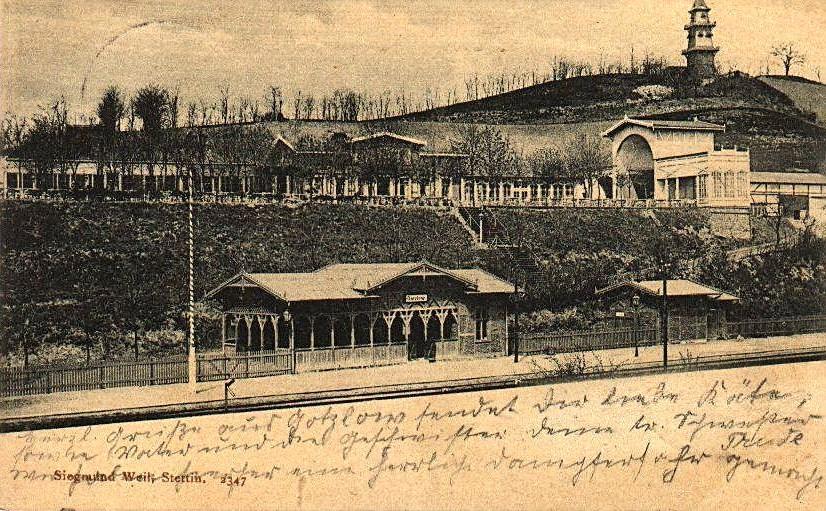 Gotzlow
Herzl. Grüße aus Gotzlow sendet Dir liebe Käte,
sowie Vater und die Geschwister deine tr. Schwester
Trude
eine herrliche Dampferfahr gemacht
Siegmund Weil, Stettin. 2347